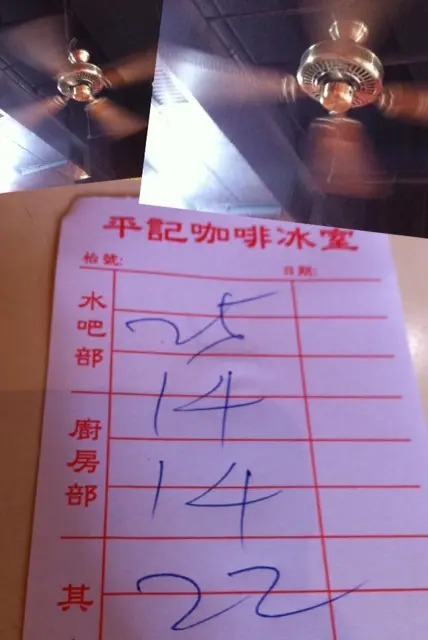 平記咖啡冰室
枱號: 日期:
水吧部
25
廚房部
14
14
其
22